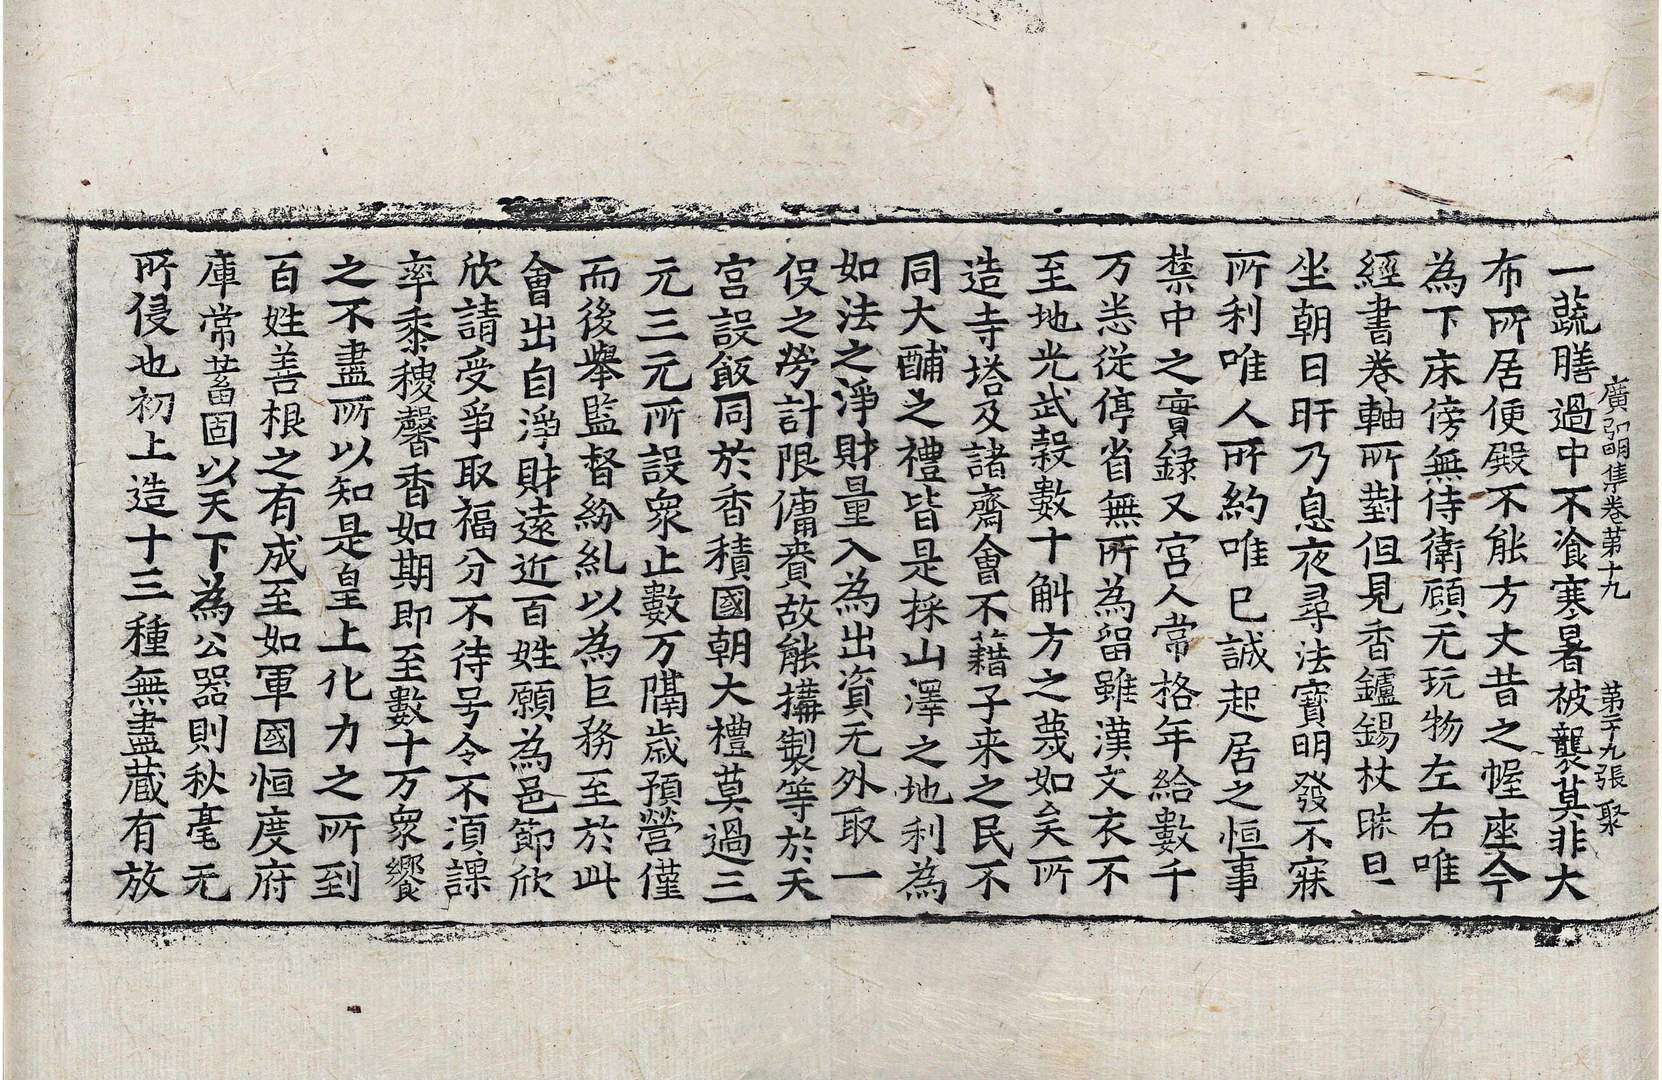 廣弘明集卷第十九　第二十九張　聚
一蔬膳過中不飡寒暑被襲莫非大
布所居便殿不能方丈昔之幄座今
為下床傍無侍衛顧无玩物左右唯
經書卷軸所對但見香鑪錫杖昧旦
坐朝日旰乃息夜尋法寶明發不寐
所利唯人所約唯已誠起居之恒事
禁中之實録又宮人常格年給數千
万悉從停省無所為留雖漢文衣不
至地光武穀數十斛方之蔑如矣所
造寺塔及諸齋會不藉子来之民不
同大酺之禮皆是採山澤之地利為
如法之淨財量入為出資无外取一
役之勞計限傭賚故能搆製等於天
宮設飯同於香積國朝大禮莫過三
元三元所設衆止數万隔歲預營僅
而後舉監督紛糺以為巨務至於此
會出自淨財遠近百姓願為邑節欣
欣請受爭取福分不待号令不湏課
率黍稷馨香如期即至數十万衆饗
之不盡所以知是皇上化力之所到
百姓善根之有成至如軍國恒度府
庫常蓄固以天下為公器則秋毫无
所侵也初上造十三種無盡蔵有放